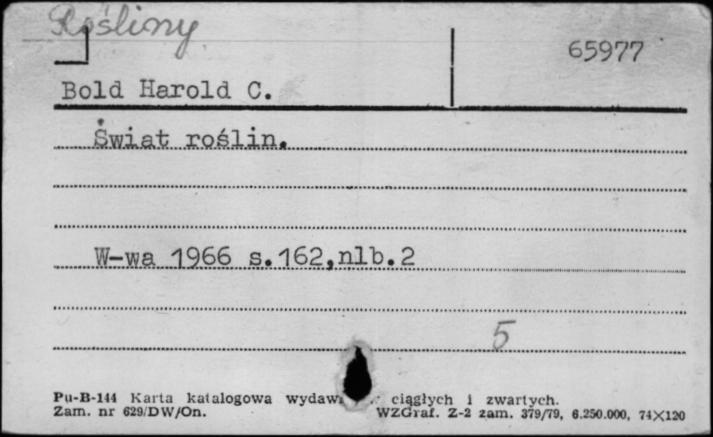 Rośliny
65977
Bold Harold C.
Świat roślin.
W-wa 1966 s.162,nlb.2
5
Pu-B-144 Karta katalogowa ciągłych i zwartych.
Zam. nr 629/DW/On. WZGraf. Z-2 zam. 379/79, 6.250.000, 74X120